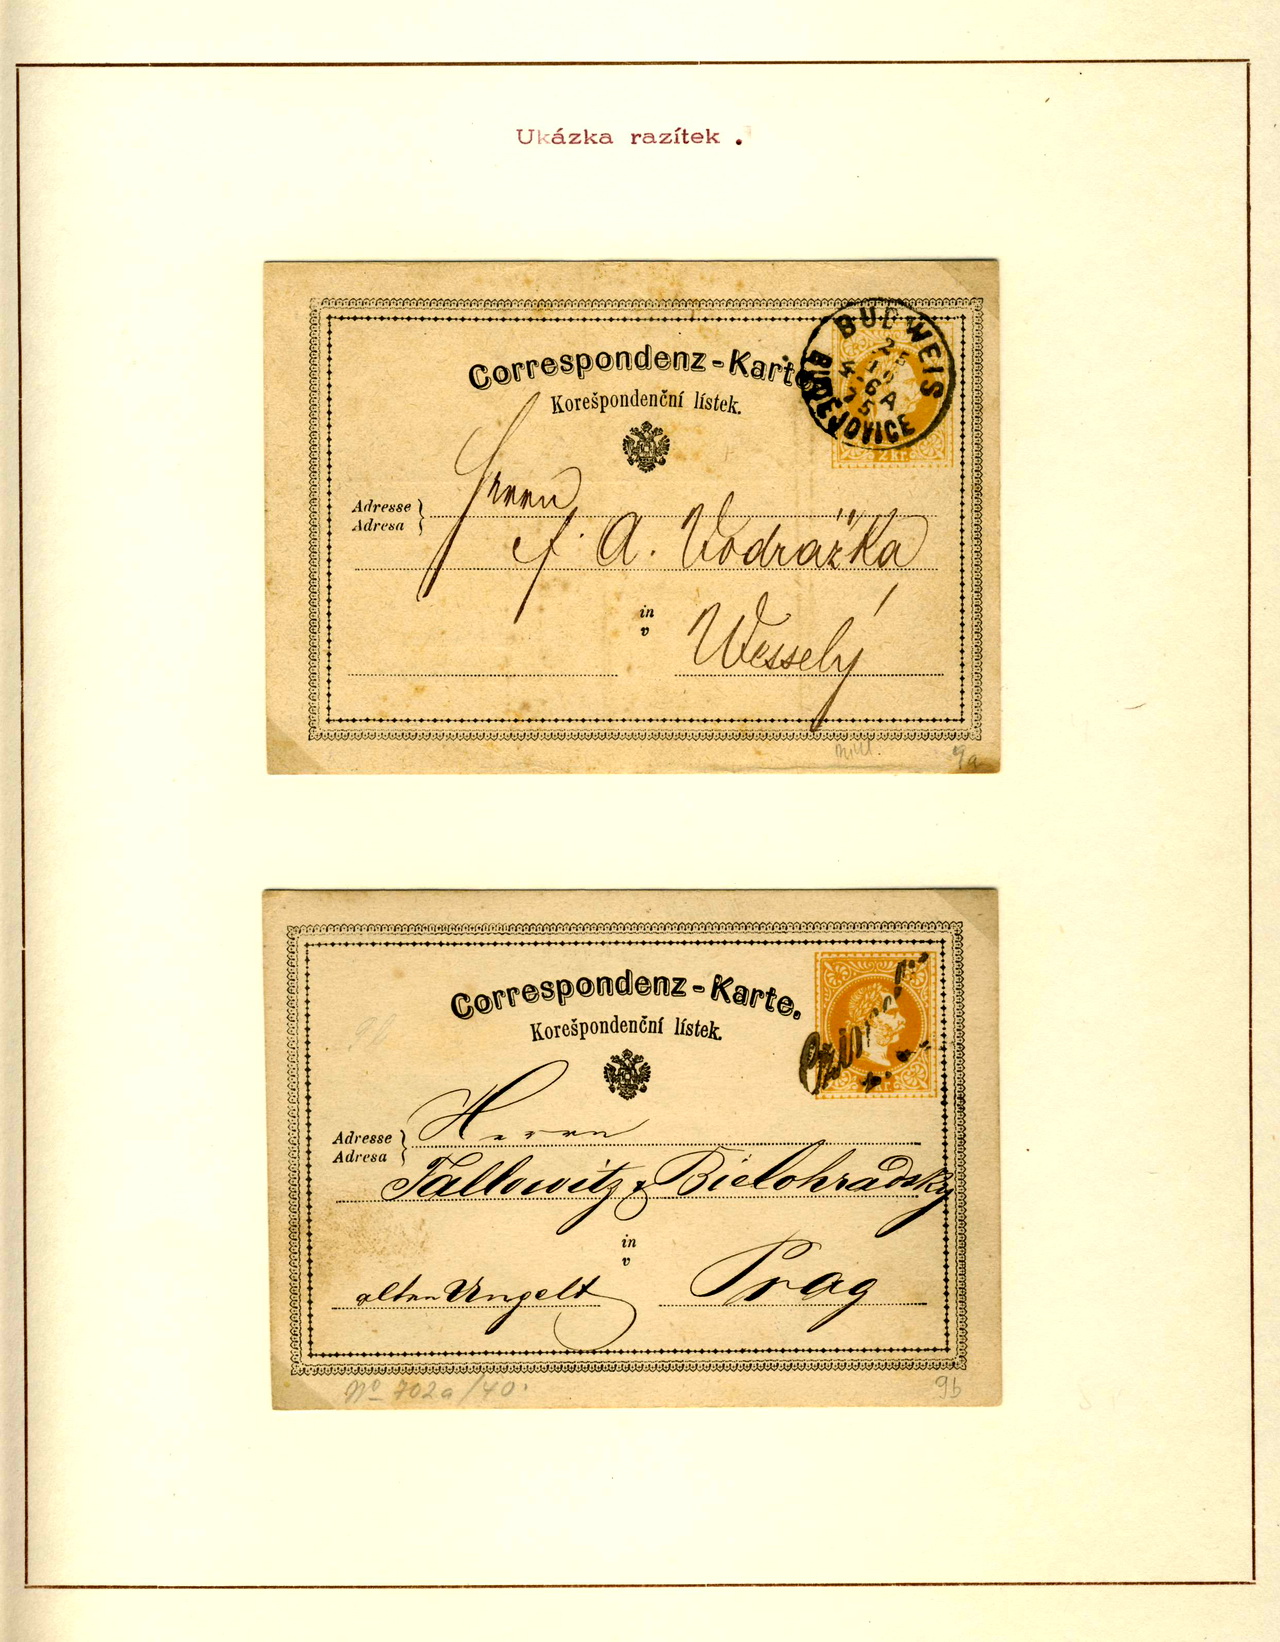 Ukázka razítek.
Correspondenz-Karte
Korešpondenční lístek.
BUDWEIS
BUDEJOVICE
25
10
6A
75
2 kr.
Adresse
Adresa
Herrn
A. Vodrážka
in
v
Wessely
9a
Correspondenz-Karte.
Korešpondenční lístek.
Adresse
Adresa
Herrn
Tallowitz & Bielohradsky
in
v
alten Ungelt
Prag
No 702a/40.
9b